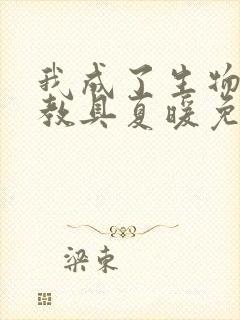 我成了生物
教具夏暖免
梁东